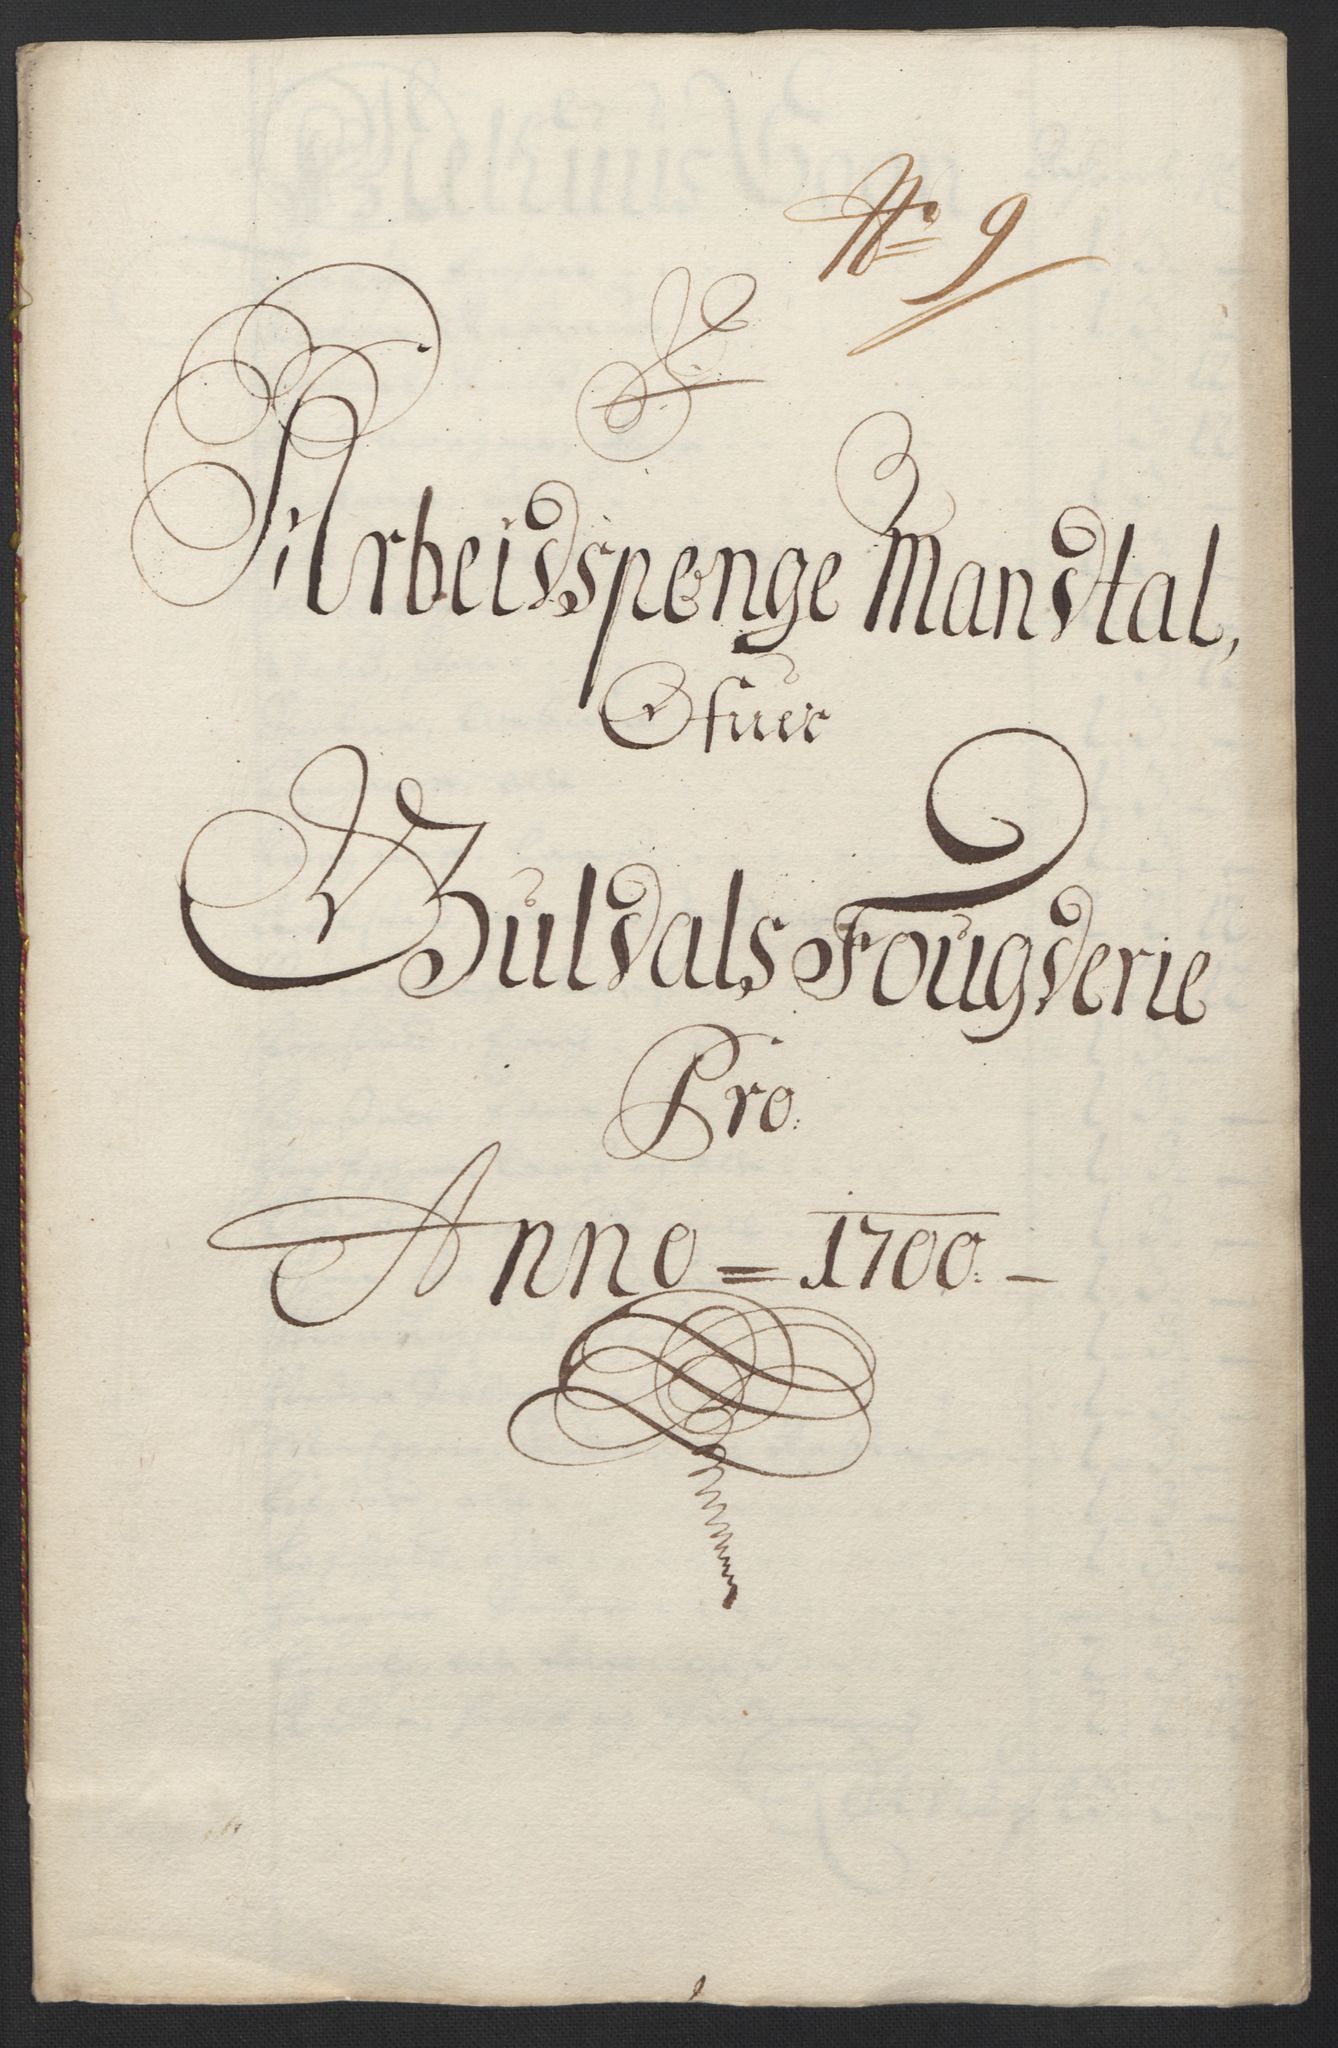 No 9
Arbeidspenge Mandtal,
Ofuer
Guldals Fougderie
Pro.
Anno = 1700. -